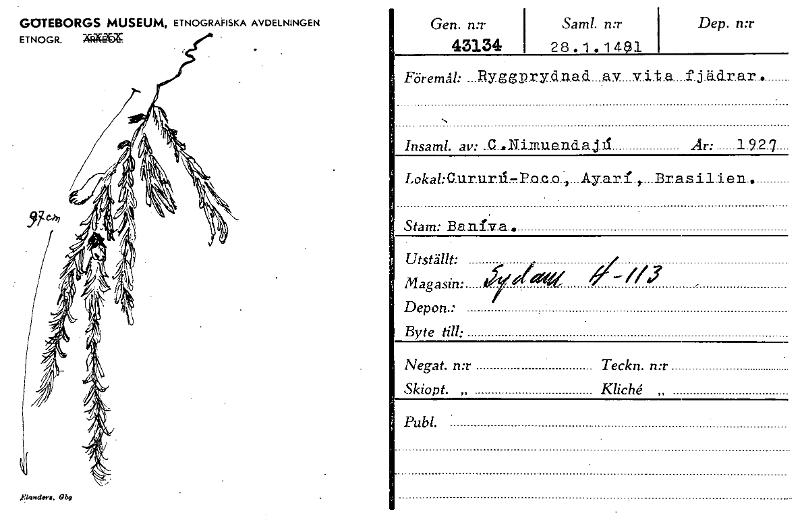 GÖTEBORGS MUSEUM, ETNOGRAFISKA AVDELNINGEN
ETNOGR.
97cm
Elanders, Gbg
Gen. n:r Saml. n:r Dep. n:r
43134 28.1.1481
Föremål: Ryggprydnad av vita fjädrar.
Insaml. av: C.Nimuendajú År: 1927
Lokal: Cururú-Poco, Ayarí, Brasilien.
Stam: Baníva.
Utställt:
Magasin: Sydam H-113
Depon.:
Byte till:
Negat. n:r Teckn. n:r
Skiopt. „ Kliché „
Publ.